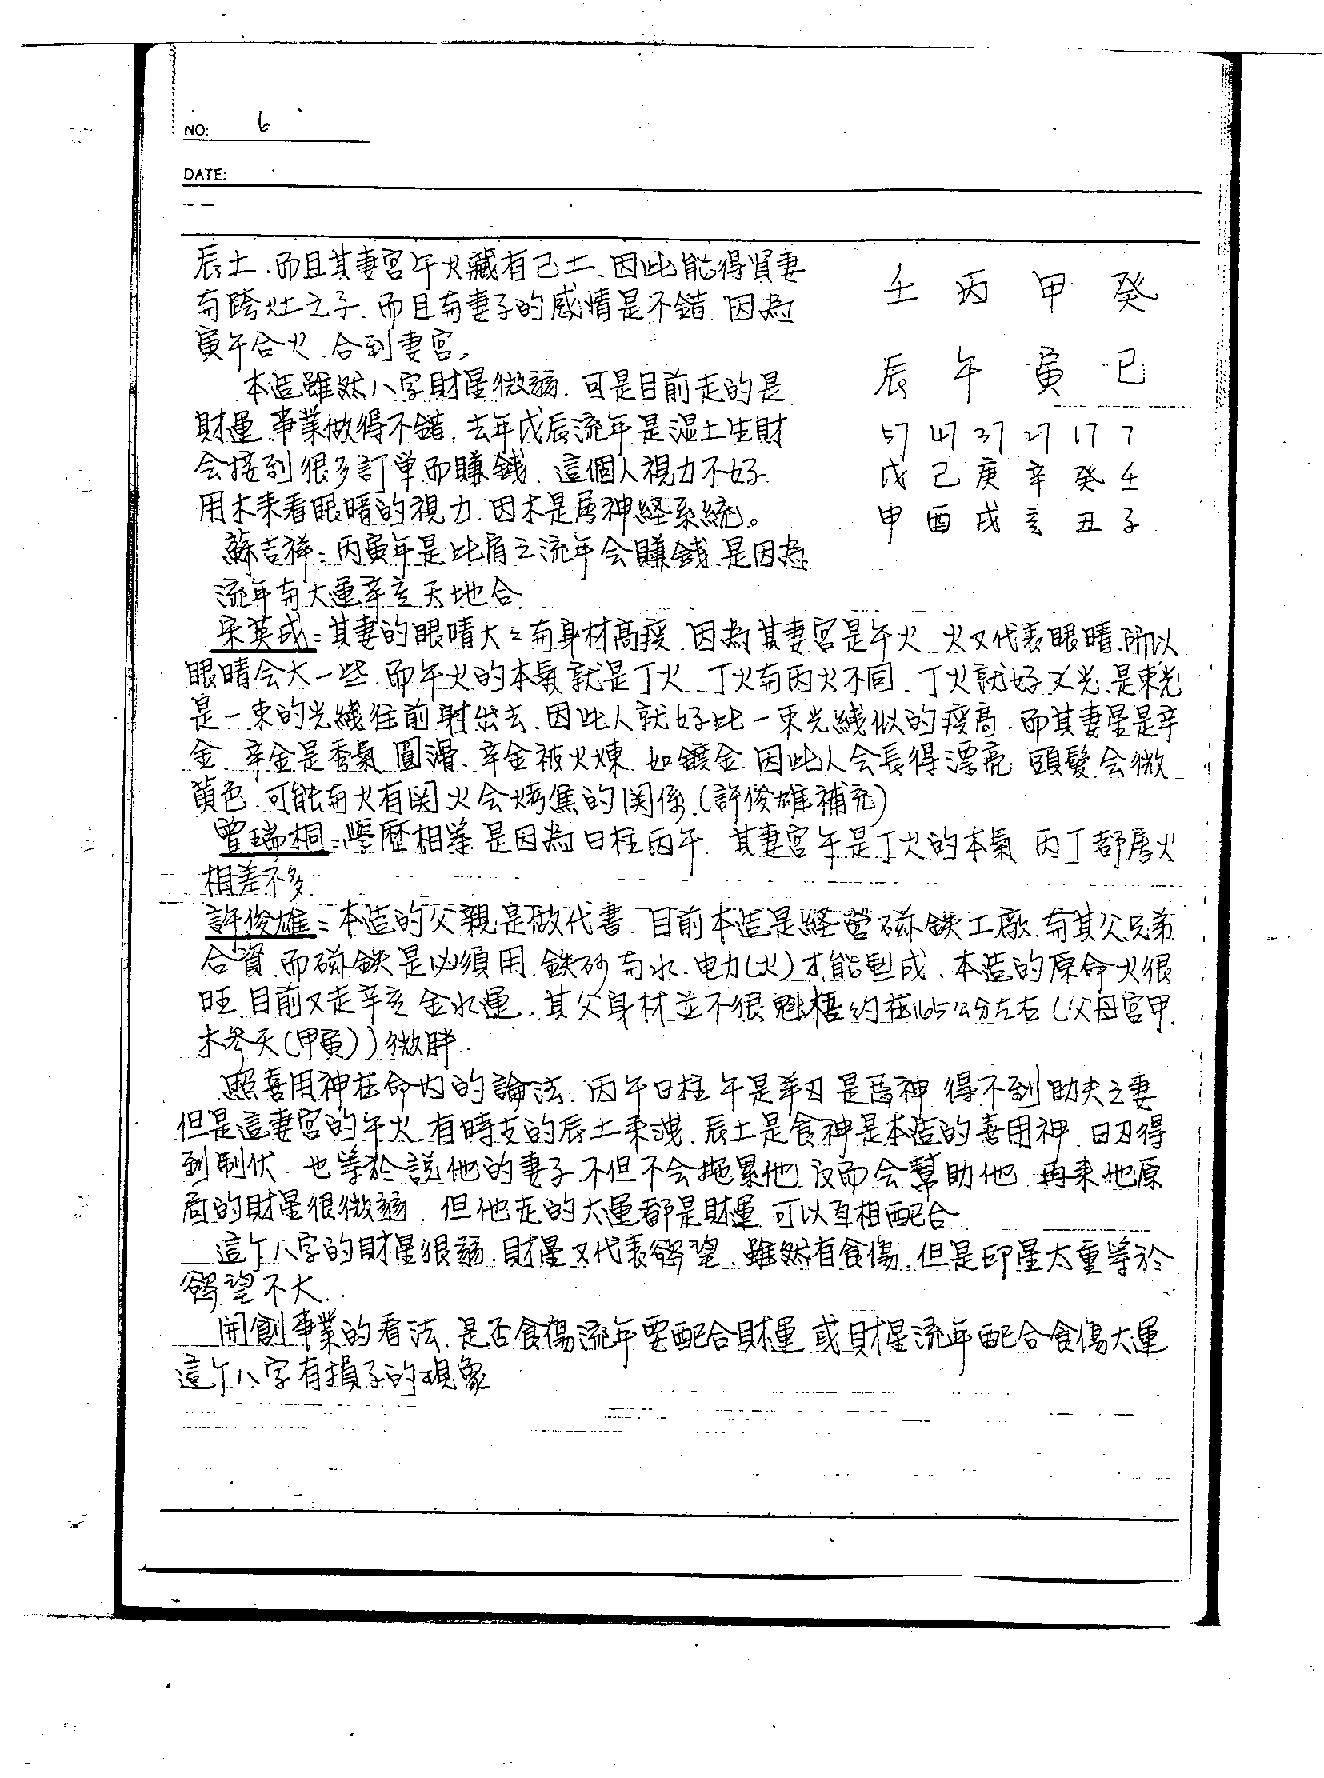 NO: 6
DATE:
辰土.而且其妻宮午火藏有己土.因此能得賢妻
有跨灶之子.而且有妻子的感情是不錯.因為
寅午合火.合到妻宮。
壬 丙 甲 癸
辰 午 寅 巳
57 47 37 27 17 7
戊 己 庚 辛 癸 壬
甲 酉 戌 亥 丑 子
本造雖然八字財星微弱.可是目前走的是
財運.事業做得不錯.去年戊辰流年是湿土生財
会接到很多訂单而賺錢.這個人視力不好.
用木來看眼睛的視力.因木是屬神経系統。
蘇吉祥:丙寅年是比肩之流年会賺錢.是因為
流年有大運辛亥天地合
宋英成:其妻的眼睛大:有身材高瘦.因為其妻宮是午火.火又代表眼睛.所以
眼睛会大一些.而午火的本氣就是丁火.丁火有丙火不同.丁火就好 光.是束光
是一束的光綫往前射出去.因此人就好比一束光綫似的瘦高.而其妻星是辛
金.辛金是秀氣.圓滑.辛金被火煉.如鍍金.因此人会長得漂亮.頭髮会微
黃色.可能有火有関.火会烤焦的関係.(許俊雄補充)
曾瑞桐:學歷相當是因為日柱丙午.其妻宮午是丁火的本氣.丙丁都屬火
相差不多.
許俊雄:本造的父親是做代書.目前本造是経営磁鉄工廠.有其父兄弟
合資.而磁鉄是必須用.鉄砂有水.电力(火)才能型成.本造的原命火很
旺.目前又走辛亥金水運.其父身材並不很魁梧約在165公分左右(父母宮甲
木参天(甲寅))微胖.
照喜用神在命內的論法.丙午日柱午是羊刃是忌神.得不到助夫之妻
但是這妻宮的午火.有時支的辰土來洩.辰土是食神是本造的喜用神.日刃得
到制伏.也等於說他的妻子.不但不会拖累他.反而会幫助他.再來他原
局的財星很微弱.但他走的大運都是財運.可以互相配合.
這个八字的財星很弱.財星又代表慾望.雖然有食傷.但是印星太重等於
慾望不大.
開創事業的看法.是否食傷流年要配合財運.或財星流年配合食傷大運
這个八字有損子的現象